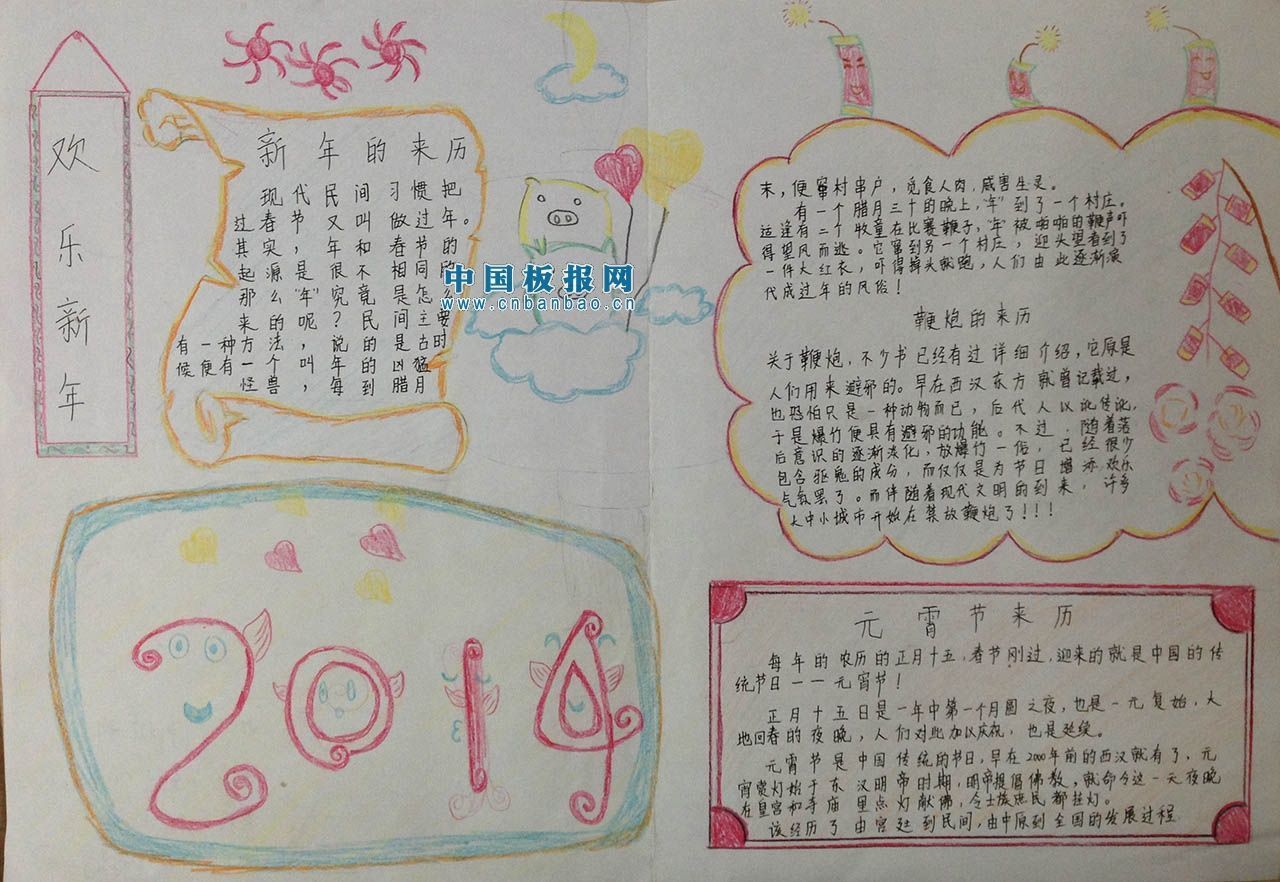 欢乐新年
新年的来历
现代民间习惯把
过春节又叫做过年。
其实，年和春节的
起源是很不相同的
那么"年"究竟是怎么
来的呢？民间主要
有一种方法，说的是古时
候便有一个叫年的凶猛
怪兽，每到腊月
中国板报网
www.cnbanbao.cn
2014
末，便窜村串户，觅食人肉，威害生灵。
有一个腊月三十的晚上，"年"到了一个村庄。
运逢有二个牧童在比赛鞭子，"年"被啪啪的鞭声吓
得望风而逃。它窜到另一个村庄，迎头望看到了
一件大红衣，吓得掉头就跑，人们由此逐渐演
代成过年的风俗！
鞭炮的来历
关于鞭炮，不少书已经有过详细介绍，它原是
人们用来避邪的。早在西汉东方就曾记载过，
也恐怕只是一种动物而已，后代人以讹传讹，
于是爆竹便具有避邪的功能。不过，随着落
后意识的逐渐淡化，放爆竹一俗，已经很少
包含驱鬼的成分，而仅仅是为节日增添欢乐
气氛罢了。而伴随着现代文明的到来，许多
大中小城市开始在禁放鞭炮了！！！
元宵节来历
每年的农历的正月十五，春节刚过，迎来的就是中国的传
统节日一一元宵节！
正月十五日是一年中第一个月圆之夜，也是一元复始，大
地回春的夜晚，人们对此加以庆祝，也是延续。
元宵节是中国传统的节日，早在2000年前的西汉就有了，元
宵赏灯始于东汉明帝时期，明帝提倡佛教，就命令这一元夜晚
在皇宫和寺庙里点灯献佛，令士族庶民都挂灯。
该经历了由宫廷到民间，由中原到全国的发展过程